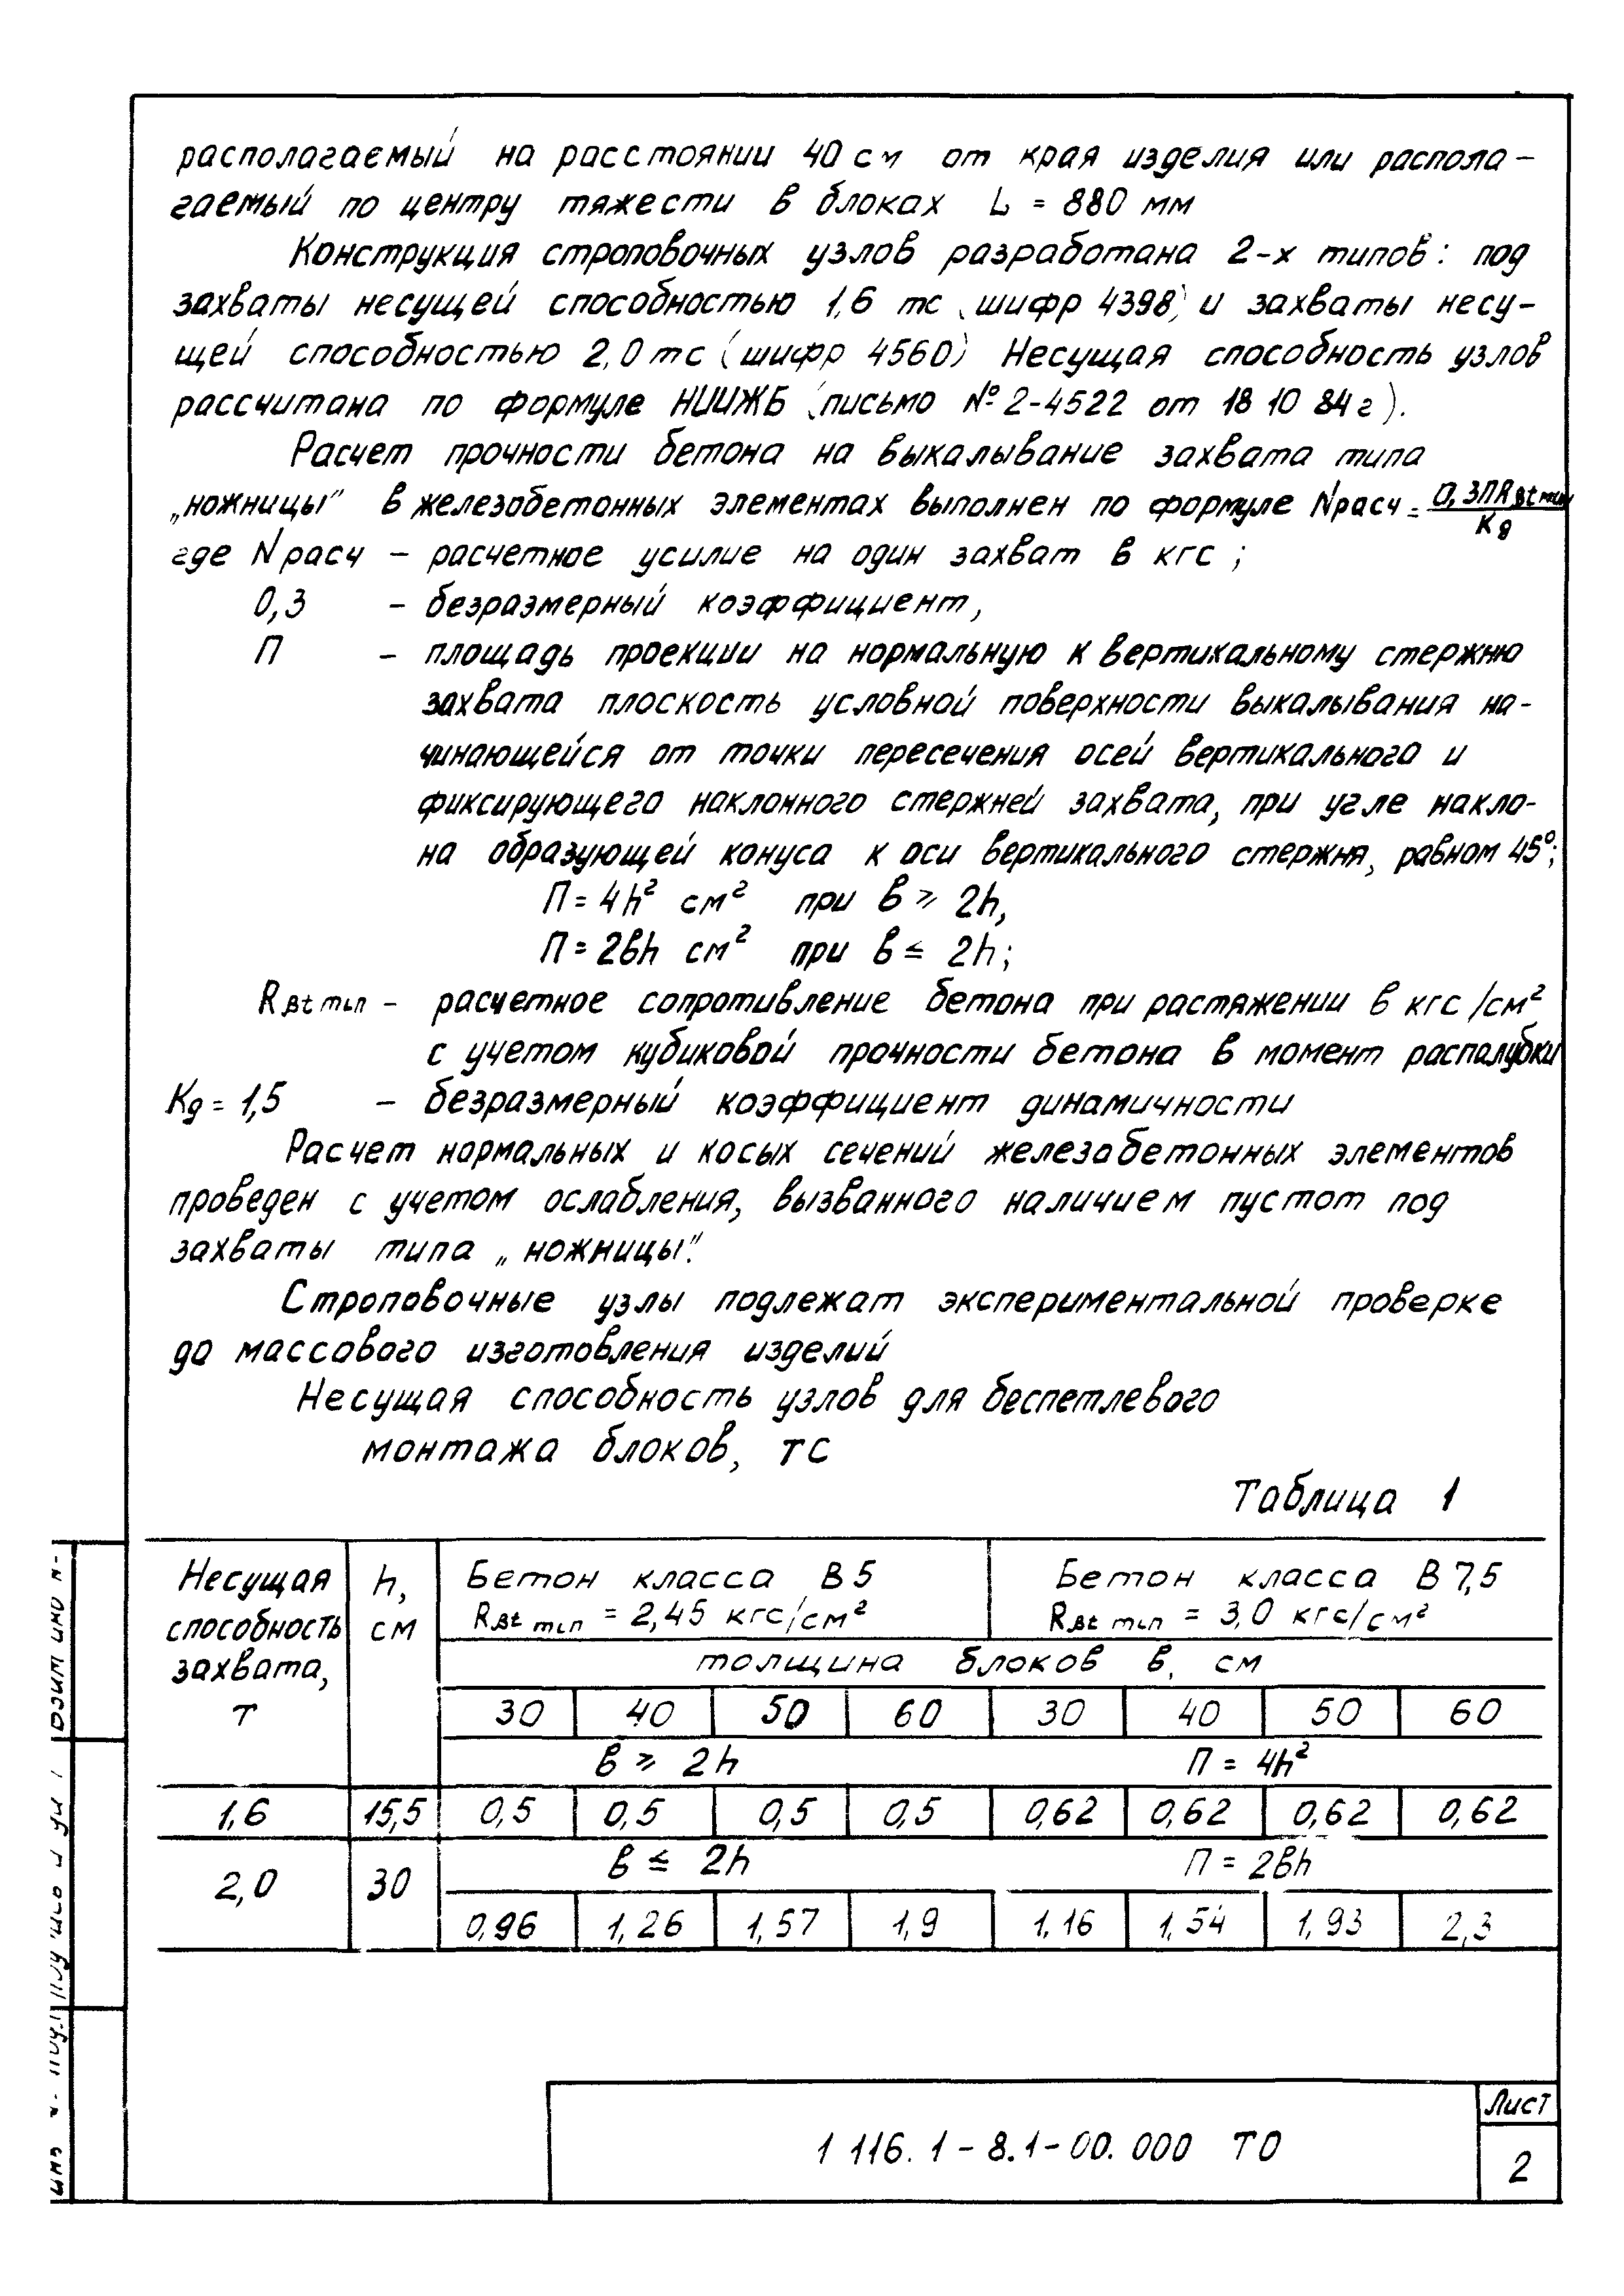 располагаемый на расстоянии 40 см от края изделия или распола-
гаемый по центру тяжести в блоках L = 880 мм
Конструкция строповочных узлов разработана 2-х типов: под
захваты несущей способностью 1,6 тс (шифр 4398) и захваты несу-
щей способностью 2,0 тс (шифр 4560) Несущая способность узлов
рассчитана по формуле НИИЖБ (письмо № 2-4522 от 18 10 84 г).
Расчет прочности бетона на выкалывание захвата типа
„ножницы" в железобетонных элементах выполнен по формуле Nрасч = 0,3ПRвt min / Kд
где Nрасч – расчетное усилие на один захват в кгс;
0,3 – безразмерный коэффициент,
П – площадь проекции на нормальную к вертикальному стержню
захвата плоскость условной поверхности выкалывания на-
чинающейся от точки пересечения осей вертикального и
фиксирующего наклонного стержней захвата, при угле накло-
на образующей конуса к оси вертикального стержня, равном 45°;
П = 4h² см² при в ⩾ 2h,
П = 2вh см² при в ≤ 2h;
Rвt min – расчетное сопротивление бетона при растяжении в кгс/см²
с учетом кубиковой прочности бетона в момент распалубки
Кд = 1,5 – безразмерный коэффициент динамичности
Расчет нормальных и косых сечений железобетонных элементов
проведен с учетом ослабления, вызванного наличием пустот под
захваты типа „ножницы".
Строповочные узлы подлежат экспериментальной проверке
до массового изготовления изделий
Несущая способность узлов для беспетлевого
монтажа блоков, тс
Таблица 1
Несущая способность захвата, т | h, см | Бетон класса В5 | Бетон класса В 7,5
Rвt min = 2,45 кгс/см² | Rвt min = 3,0 кгс/см²
толщина блоков в, см
30 | 40 | 50 | 60 | 30 | 40 | 50 | 60
в ⩾ 2h П = 4h²
1,6 | 15,5 | 0,5 | 0,5 | 0,5 | 0,5 | 0,62 | 0,62 | 0,62 | 0,62
в ≤ 2h П = 2вh
2,0 | 30 | 0,96 | 1,26 | 1,57 | 1,9 | 1,16 | 1,54 | 1,93 | 2,3
1 116. 1 – 8.1 – 00. 000 ТО
Лист
2